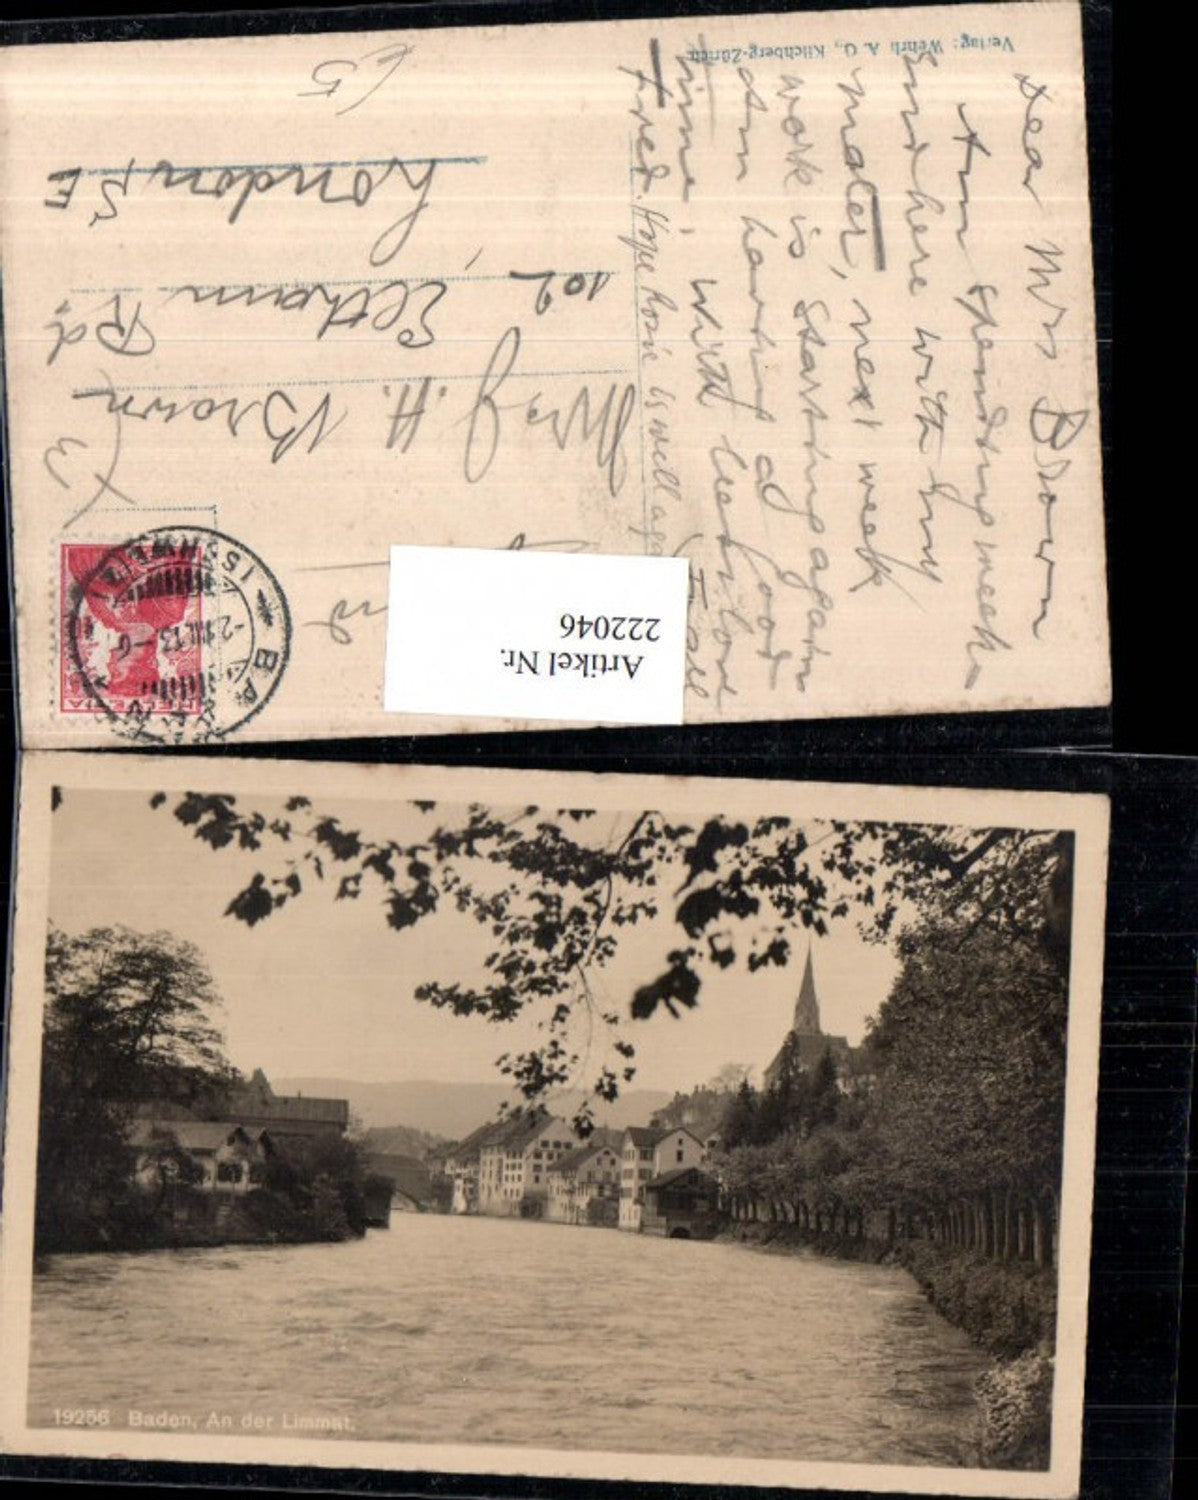 Verlag: Wehrli A. G., Kilchberg-Zürich
Dear Mrs Brown
Am spending week
end here with my
mater, next week
work is starting again
Am having a good
time, with best love
Fred. Hope Rosie is well again
Mrs J. H. Brown
102 Eltham Rd.
London, S E
65
HELVETIA
BADEN
-2.III.13-6
Artikel Nr.
222046
19256 Baden, An der Limmat.